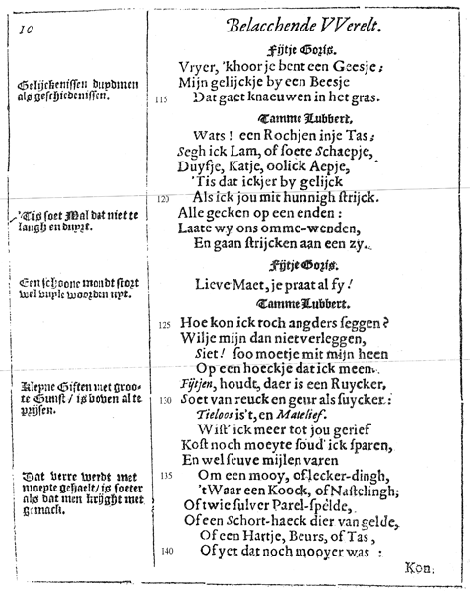 10
Belacchende VVerelt.
Fijtje Goris.
Vryer, 'khoor je bent een Geesje;
Mijn gelijckje by een Beesje
Gelijckenissen duydmen
als geschiedenissen.
115 Dat gaet knaeuwen in het gras.
Tamme Lubbert.
Wats! een Rochjen inje Tas;
Segh ick Lam, of soete Schaepje,
Duyfje, Katje, oolick Aepje,
'Tis dat ickjer by gelijck
120 Als ick jou mit hunnigh strijck.
'Tis soet Mal dat niet te
laugh en duyrt.
Alle gecken op een enden:
Laate wy ons omme-wenden,
En gaan strijcken aan een zy.
Fijtje Goris.
Een schoone mondt stort
wel vuyle woorden uyt.
Lieve Maet, je praat al fy!
Tamme Lubbert.
125 Hoe kon ick toch angders seggen?
Wilje mijn dan niet verleggen,
Siet! soo moetje mit mijn heen
Op een hoeckje dat ick meen.
Kleyne Giften met groo-
te Gunst / is boven al te
prijsen.
Fijtjen, houdt, daer is een Ruycker,
130 Soet van reuck en geur als suycker:
Tieloos is't, en Matelief.
Wist ick meer tot jou gerief
Kost noch moeyte soud' ick sparen,
En wel seuve mijlen varen
Dat verre werdt met
moeyte gehaelt / is soeter
als dat men krijght met
gemack.
135 Om een mooy, of lecker-dingh,
't Waar een Koock, of Nastelingh;
Of twie sulver Parel-spelde,
Of een Schort-haeck dier van gelde,
Of een Hartje, Beurs, of Tas,
140 Of yet dat noch mooyer was:
Kon